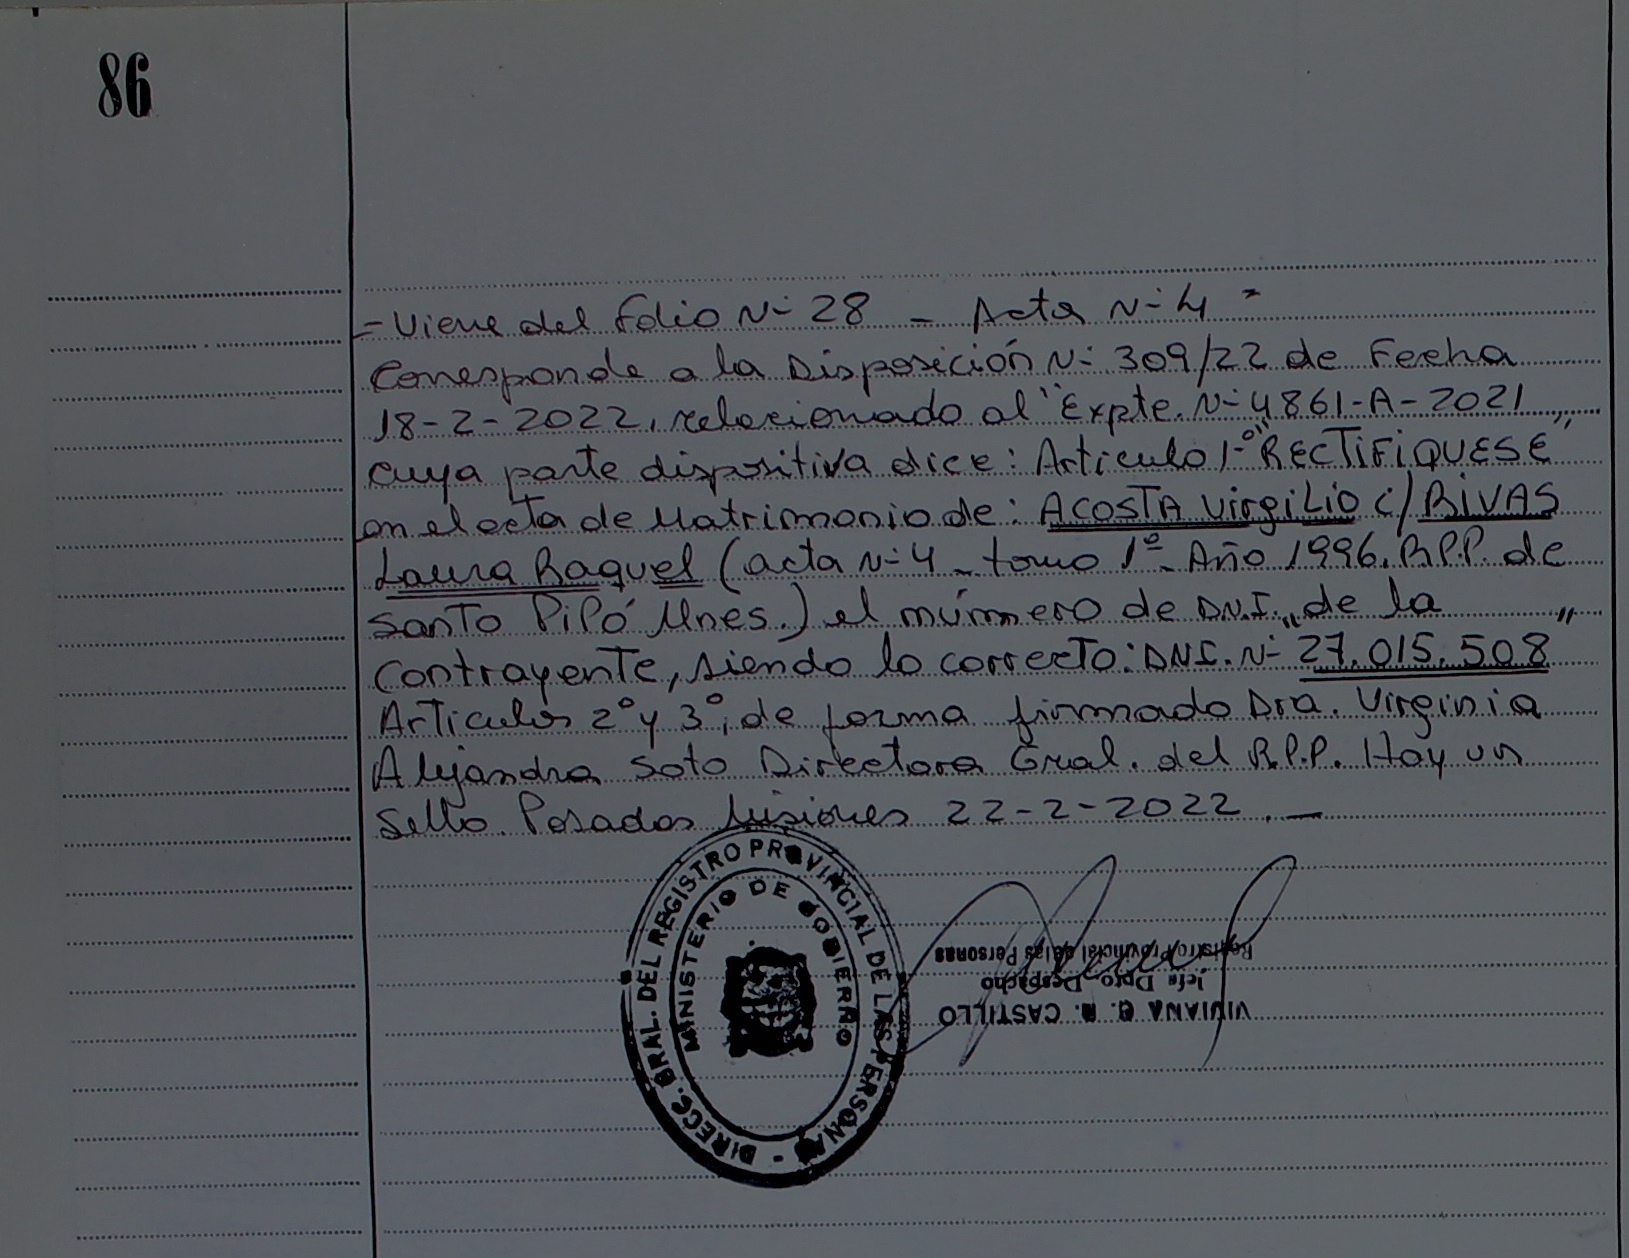 86
= Viene del folio N- 28 - Acta N- 4 =
Corresponde a la Disposición N- 309/22 de Fecha
18-2-2022, relacionado al "Expte. N- 4861-A-2021"
cuya parte dispositiva dice: Artículo 1-º "RECTIFIQUESE"
en el acta de Matrimonio de: ACOSTA Virgilio c/ RIVAS
Laura Raquel (acta N- 4 - tomo 1º - Año 1996. R.P.P. de
Santo Pipó Mnes.) el número de D.N.I. de la
contrayente, siendo lo correcto: DNI. N- "27.015.508"
Artículos 2º y 3º, de forma firmado Dra. Virginia
Alejandra Soto Directora Gral. del R.P.P. Hay un
Sello. Posadas Misiones 22-2-2022. -
DIRECC. GRAL. DEL REGISTRO PROVINCIAL DE LAS PERSONAS -
MINISTERIO DE GOBIERNO
VIVIANA R. CASTILLO
Jefa Dpto. Despacho
Registro Provincial de las Personas